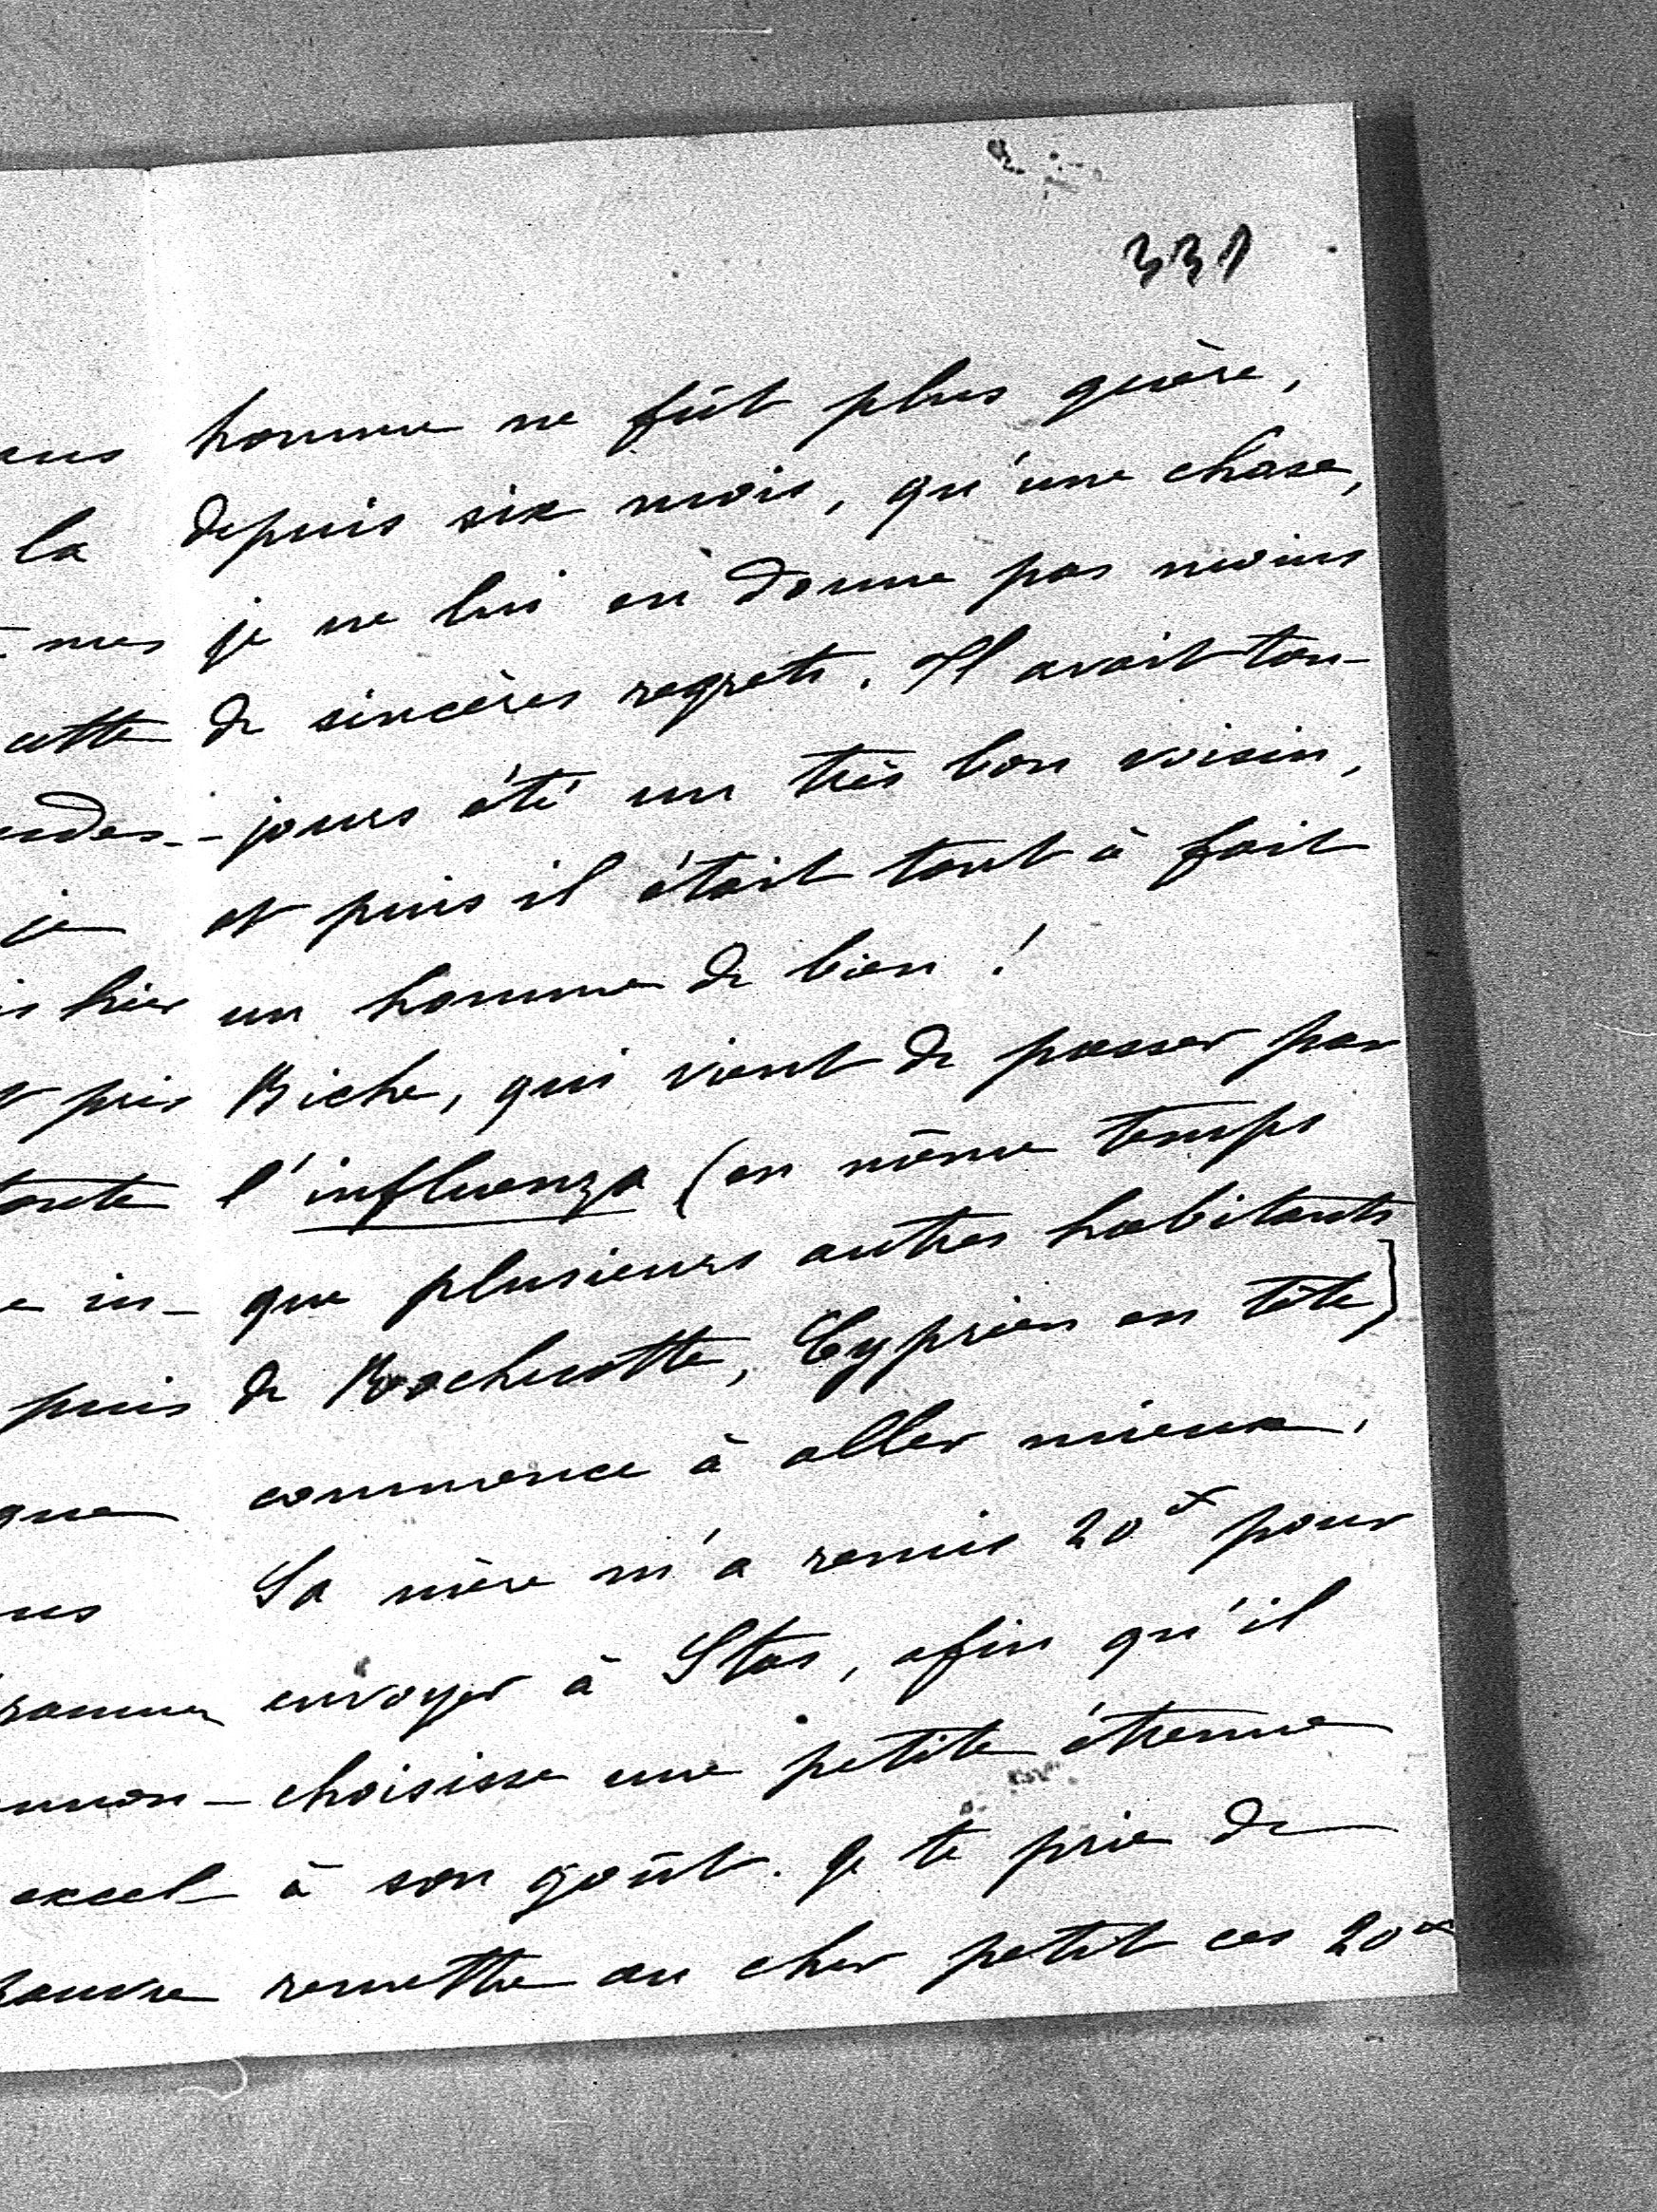 331
homme ne fût plus guère,
depuis six mois, qu'une chose,
je ne lui en donne pas moins
de sincères regrets. Il avait tou-
-jours été un très bon voisin,
et puis il était tout à fait
un homme de bien !
Biche, qui vient de passer par
l'influenza (en même temps
que plusieurs autres habitants
de Rochecotte, Cyprien en tête)
commence à aller mieux.
Sa mère m'a remis 20 pour
envoyer à Stas, afin qu'il
choisisse une petite étrenne
à son goût. Je te prie de
remettre au cher petit ces 20
la
cette
je
hier
pris
in-
puis